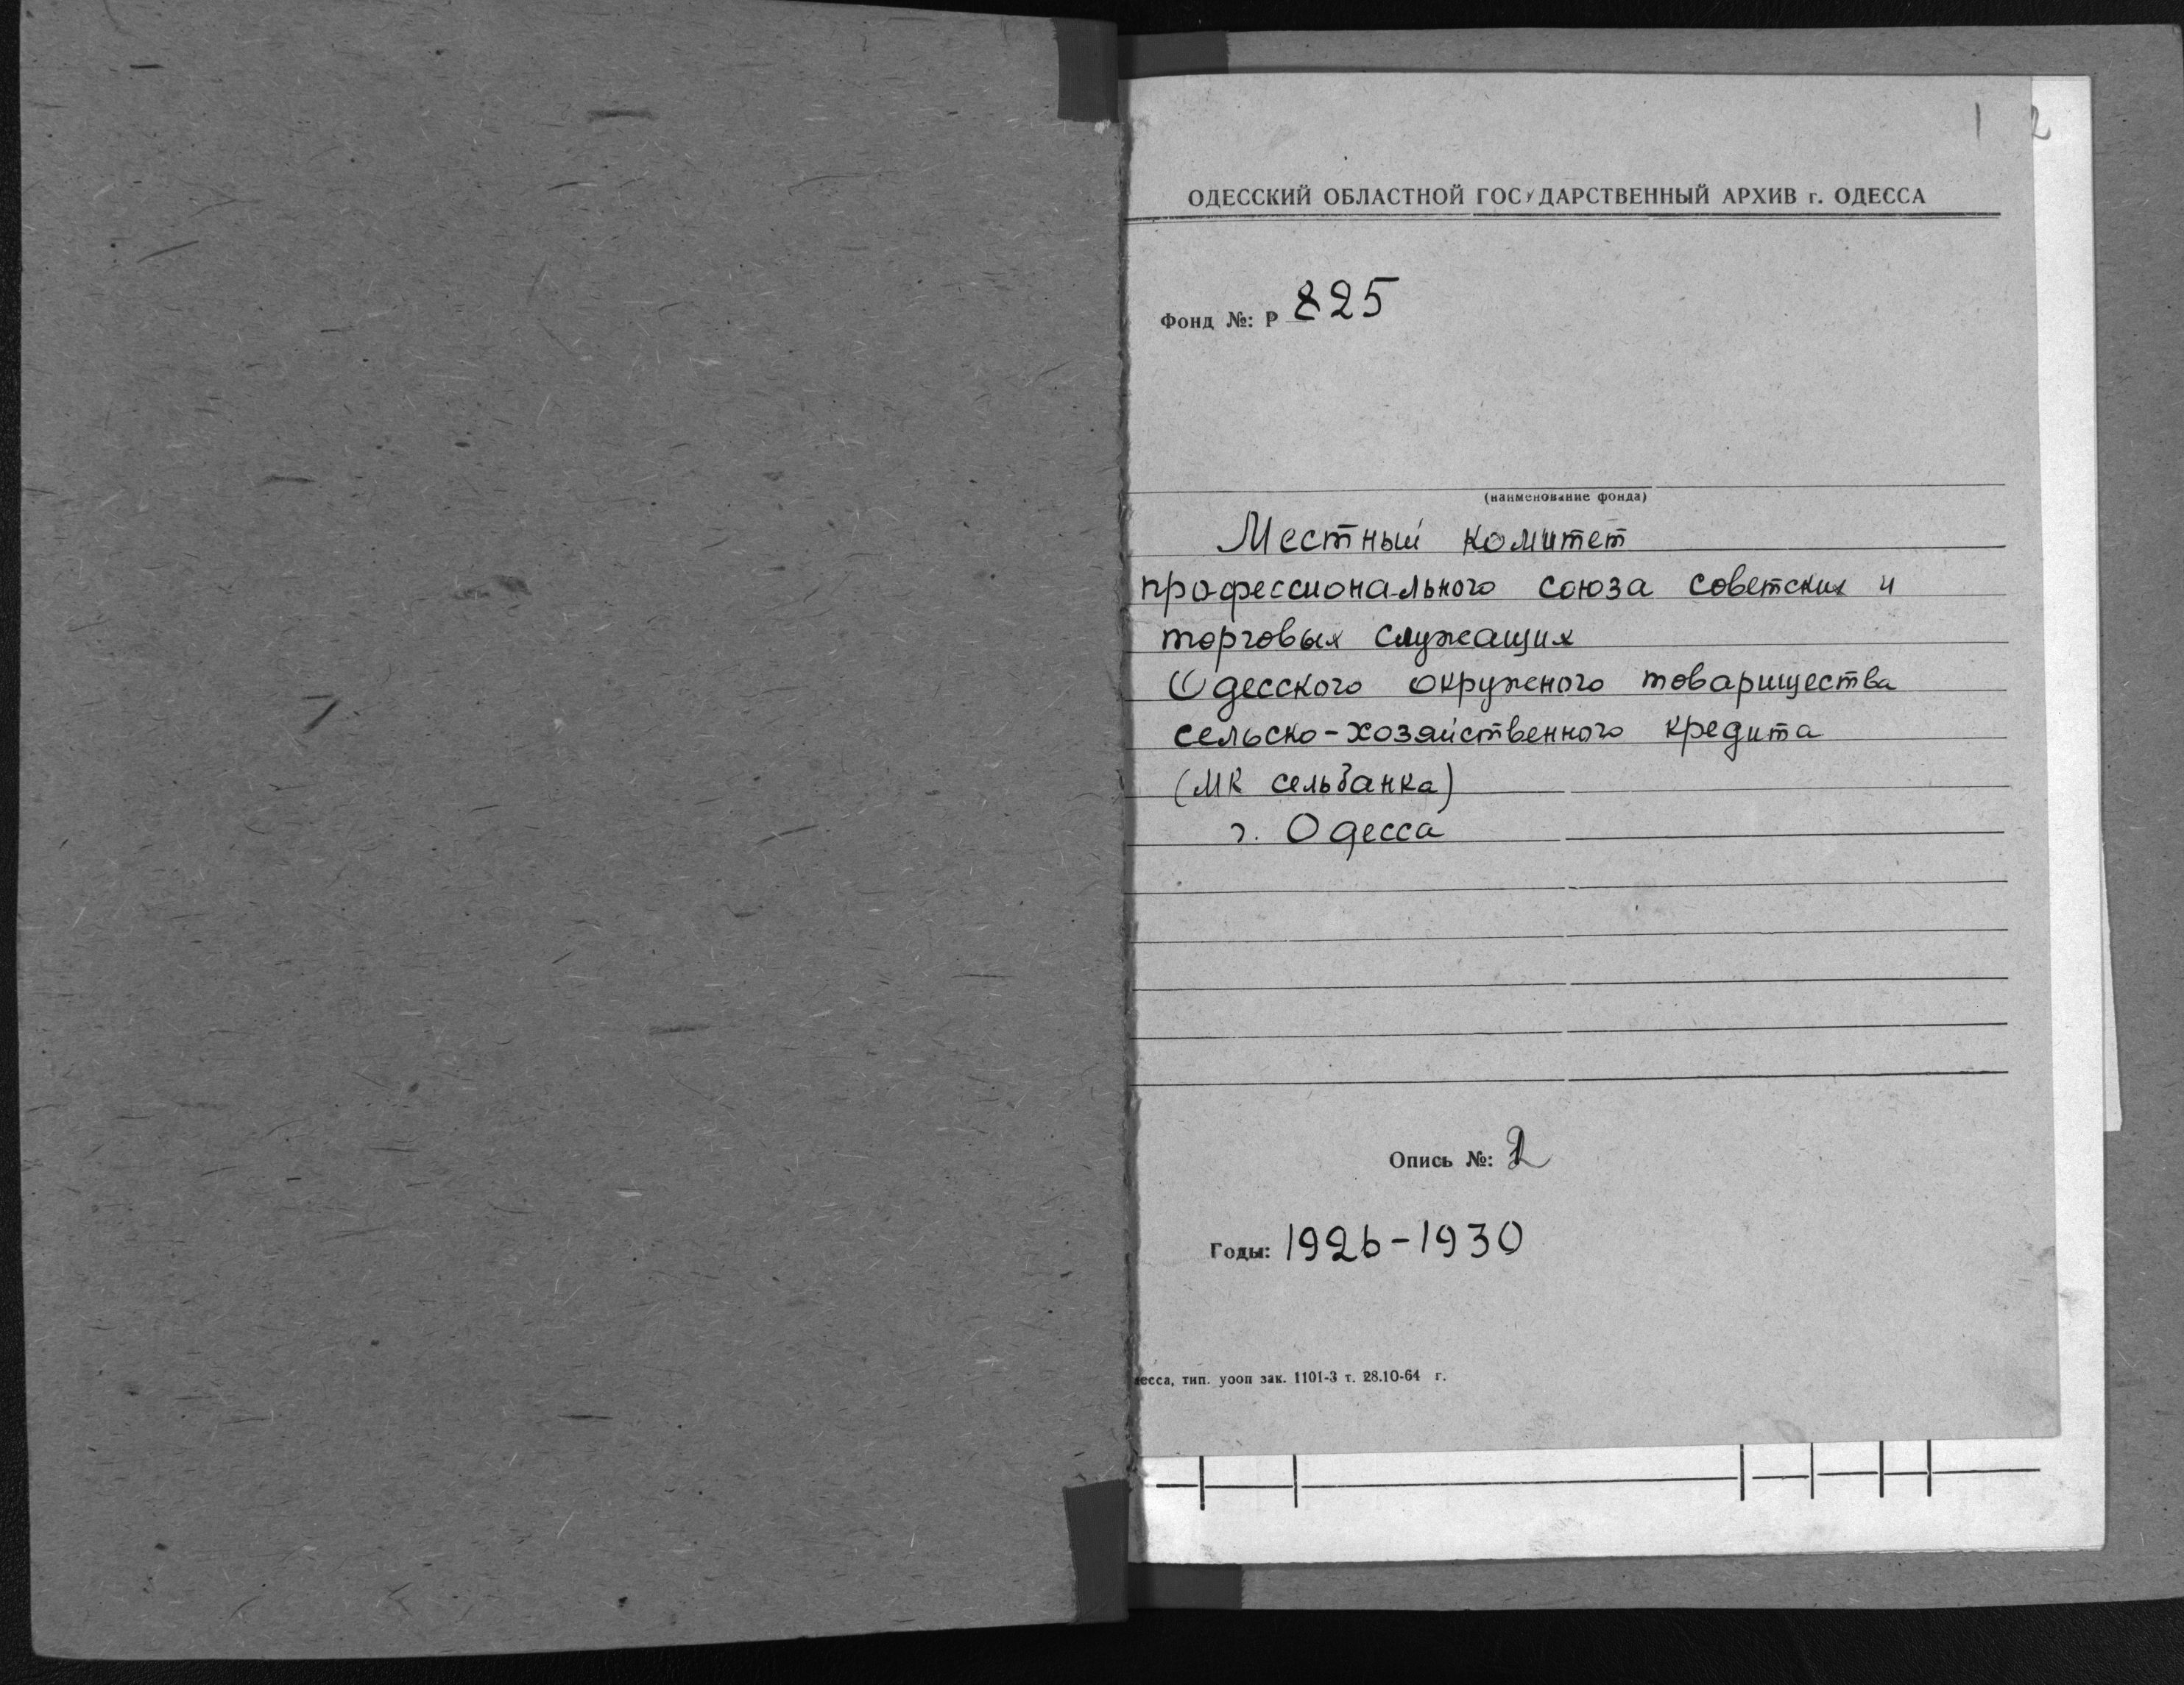 1 2
ОДЕССКИЙ ОБЛАСТНОЙ ГОСУДАРСТВЕННЫЙ АРХИВ г. ОДЕССА
Фонд №: Р 825
(наименование фонда)
Местный комитет
профессионального союза советских и
торговых служащих
Одесского окружного товарищества
сельско-хозяйственного кредита
(МК сельбанка)
г. Одесса
Опись №: 2
Годы: 1926-1930
есса, тип. уооп зак. 1101-3 т. 28.10-64 г.